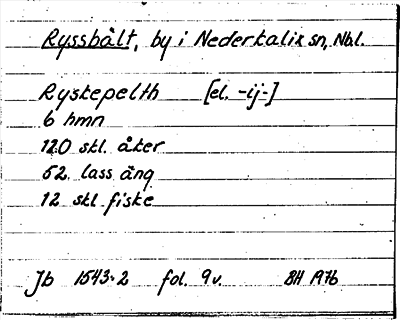 Ryssbält, by i Nederkalix sn, Nbl.
Ryskepelth [el. -ij-]
6 hmn
120 skl. åker
52. lass äng
12 skl fiske
Jb 1543:2 fol. 9v. BH 1976